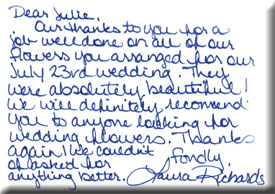 Dear Julie,
Our thanks to you for a
job well done on all of our
flowers you arranged for our
July 23rd wedding. They
were absolutely beautiful!
We will definitely recomend
you to anyone looking for
wedding flowers. Thanks
again! We couldn't
of asked for
anything better.
fondly,
Laura Richards